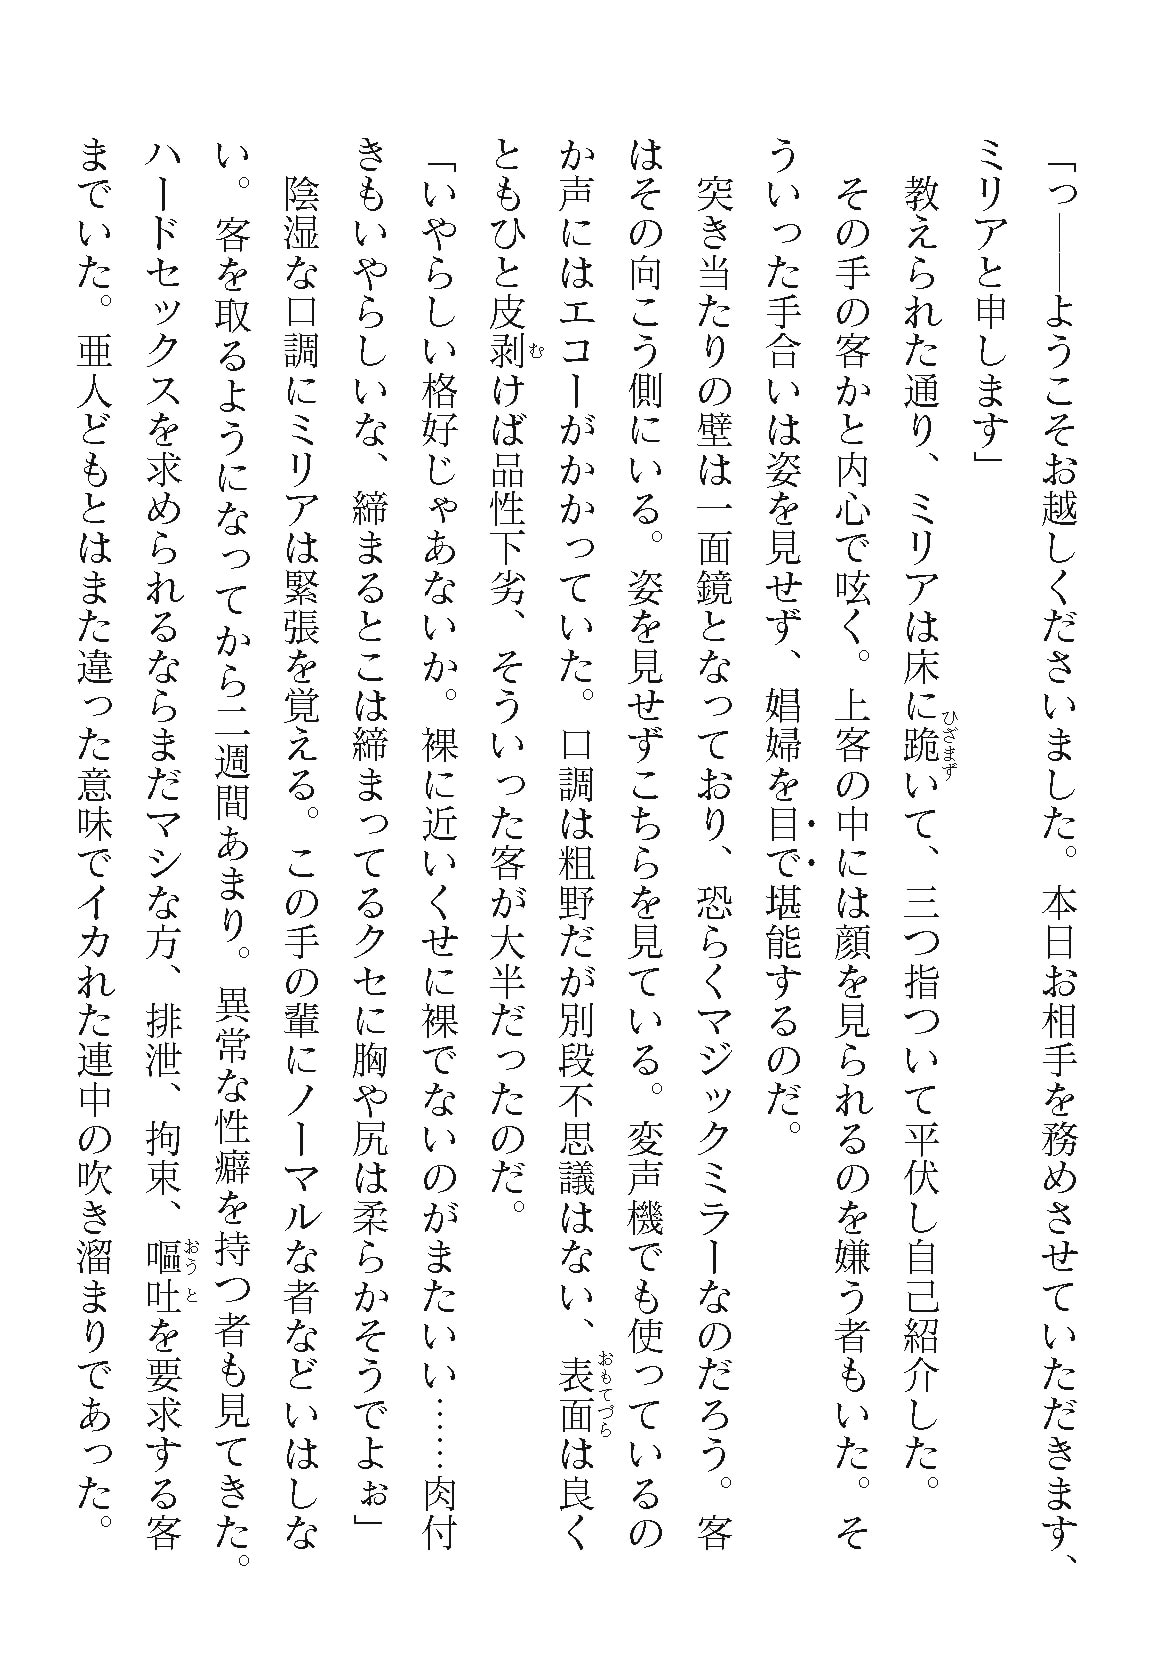 「っ――ようこそお越しくださいました。本日お相手を務めさせていただきます、
ミリアと申します」
　教えられた通り、ミリアは床に跪いて、三つ指ついて平伏し自己紹介した。
　その手の客かと内心で呟く。上客の中には顔を見られるのを嫌う者もいた。そ
ういった手合いは姿を見せず、娼婦を目で堪能するのだ。
　突き当たりの壁は一面鏡となっており、恐らくマジックミラーなのだろう。客
はその向こう側にいる。姿を見せずこちらを見ている。変声機でも使っているの
か声にはエコーがかかっていた。口調は粗野だが別段不思議はない、表面は良く
ともひと皮剥けば品性下劣、そういった客が大半だったのだ。
「いやらしい格好じゃあないか。裸に近いくせに裸でないのがまたいい……肉付
きもいやらしいな、締まるとこは締まってるクセに胸や尻は柔らかそうでよぉ」
　陰湿な口調にミリアは緊張を覚える。この手の輩にノーマルな者などいはしな
い。客を取るようになってから二週間あまり。異常な性癖を持つ者も見てきた。
ハードセックスを求められるならまだマシな方、排泄、拘束、嘔吐を要求する客
までいた。亜人どもとはまた違った意味でイカれた連中の吹き溜まりであった。